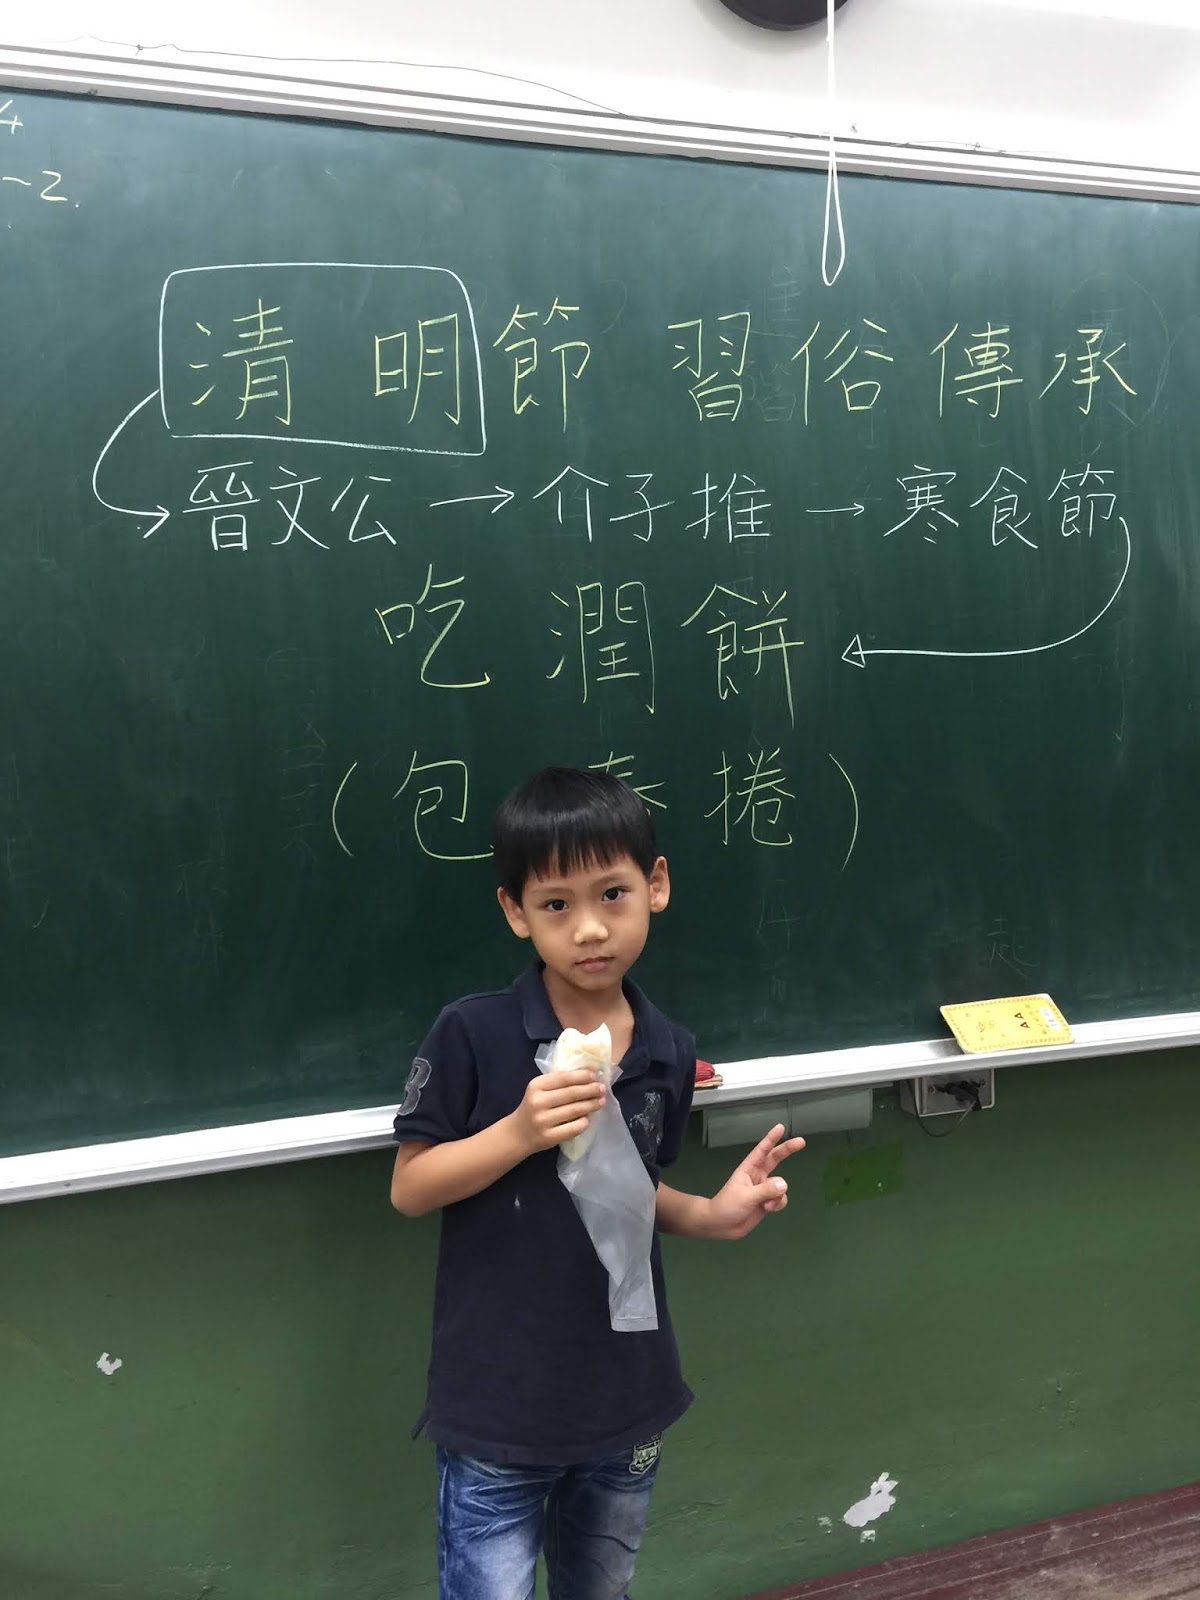 4
~2.
清明節習俗傳承
晉文公→介子推→寒食節
吃潤餅
(包春捲)